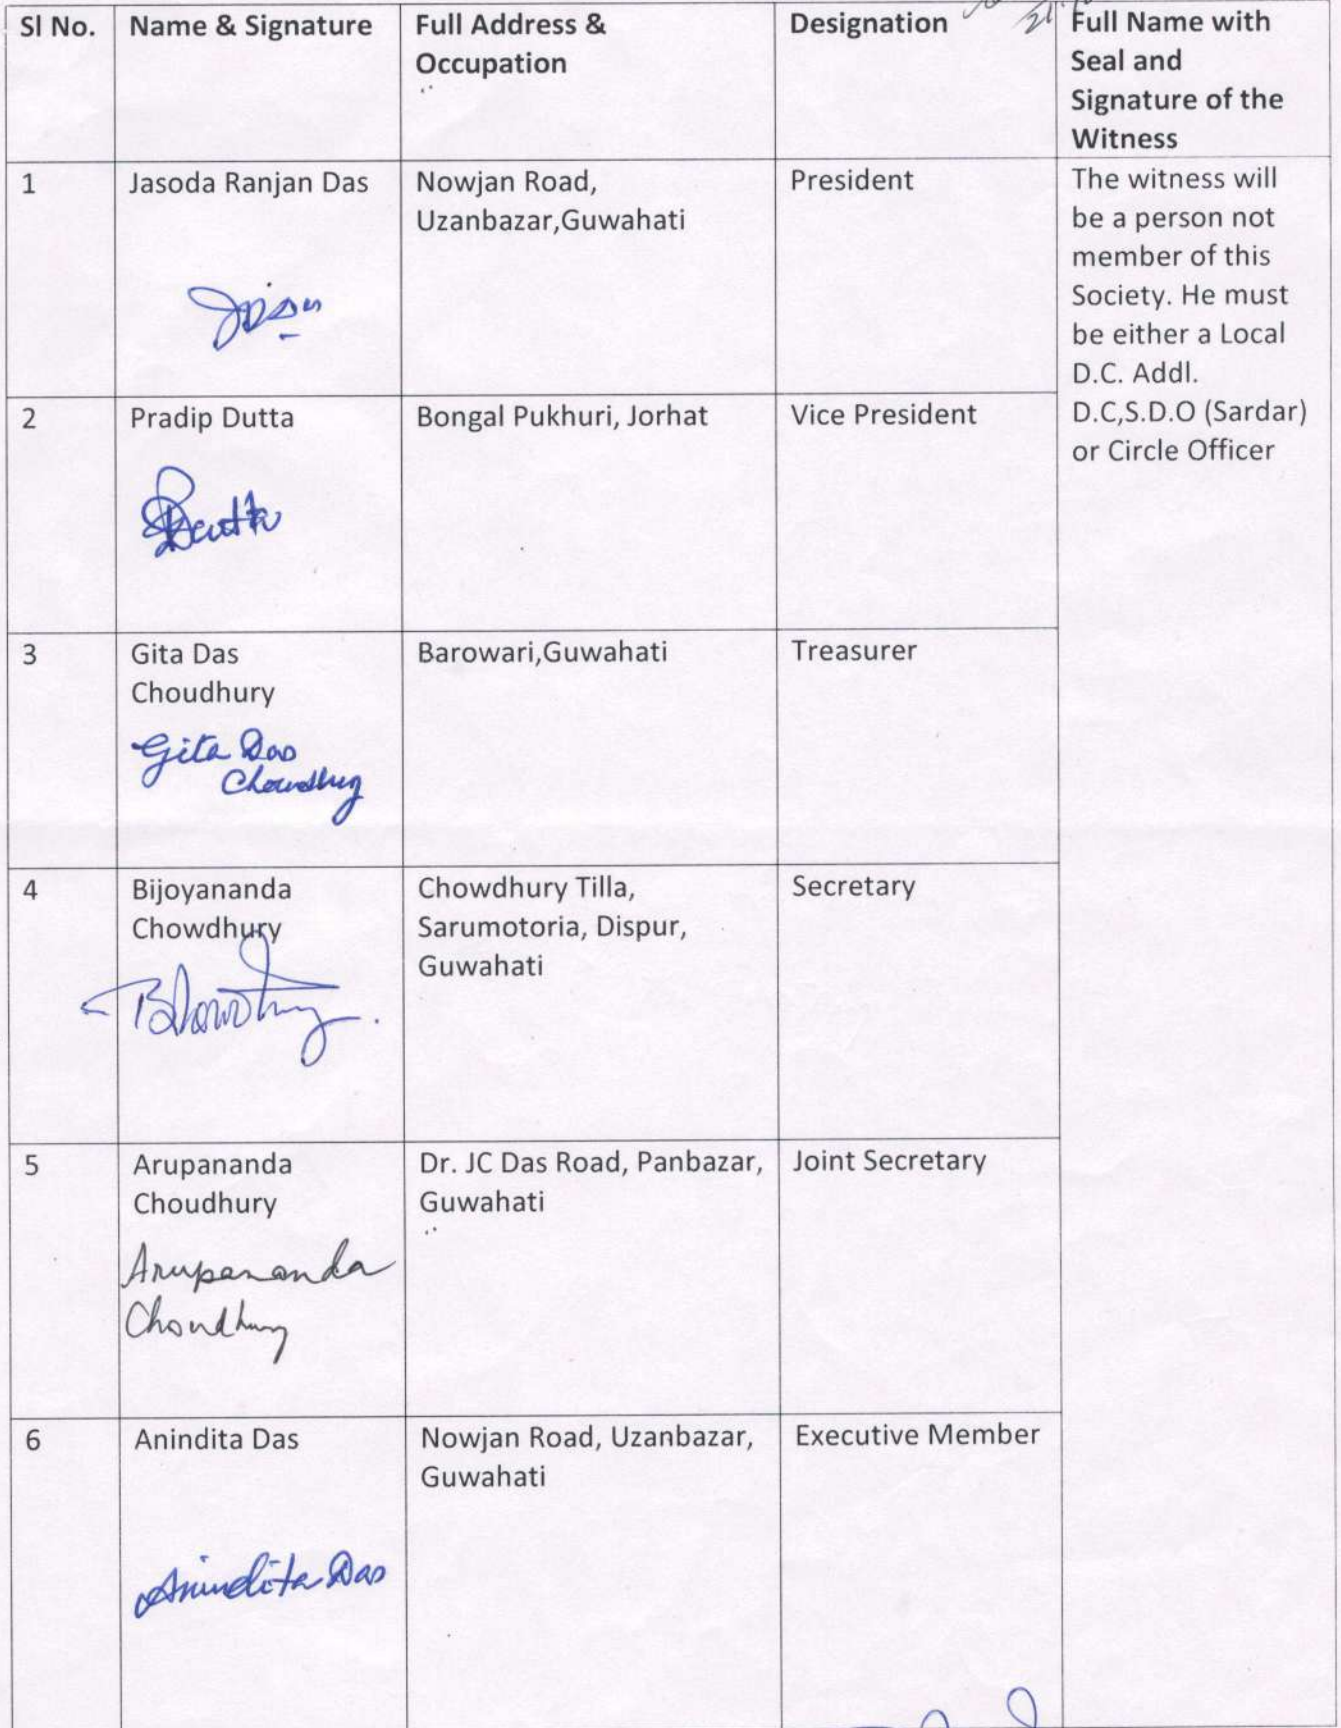 Sl No.
Name & Signature
Full Address &
Occupation
Designation
Full Name with
Seal and
Signature of the
Witness
1
Jasoda Ranjan Das
Nowjan Road,
Uzanbazar,Guwahati
President
The witness will
be a person not
member of this
Society. He must
be either a Local
D.C. Addl.
D.C,S.D.O (Sardar)
or Circle Officer
2
Pradip Dutta
Bongal Pukhuri, Jorhat
Vice President
3
Gita Das
Choudhury
Gita Das
Chowdhury
Barowari,Guwahati
Treasurer
4
Bijoyananda
Chowdhury
Chowdhury Tilla,
Sarumotoria, Dispur,
Guwahati
Secretary
5
Arupananda
Choudhury
Arupananda
Choudhury
Dr. JC Das Road, Panbazar,
Guwahati
Joint Secretary
6
Anindita Das
Anindita Das
Nowjan Road, Uzanbazar,
Guwahati
Executive Member